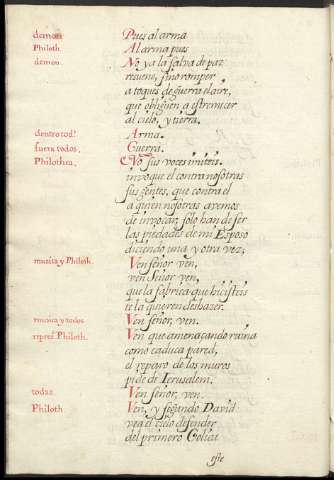 demon. Pues al arma
Philoth Al arma pues
demon. No ya la salva de paz
resuene, sino romper
a toques de guerra el aire,
que obliguen a estremecer
al cielo, y tierra.
dentro tod.s Arma.
fuera todos, Guerra.
Philothea, Yo sus voces imiteis
invoque el contra nosotras
sus gentes, que contra el
a quien nosotras avemos
de invocar, solo han de ser
las piedades de mi Esposo
diciendo una y otra vez,
musica y Philoth. Ven señor ven,
ven Señor ven,
que la fabrica que hicisteis
te la quieren deshazer.
musica y todos Ven señor, ven.
repres.ta Philoth. Ven que amenaçando ruina
como caduca pared,
el reparo de los muros
pide de Ierusalem,
todas Ven señor, ven.
Philoth Ven, y segundo David
vea el cielo defender
del primero Goliat
este